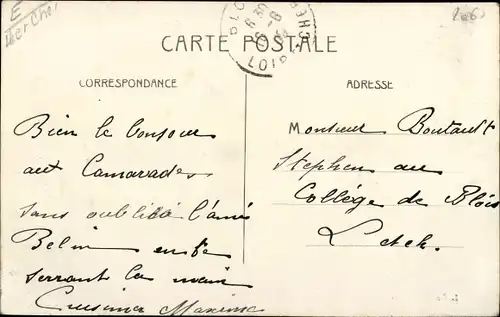 E
Cher Cher
CARTE POSTALE
CORRESPONDANCE
ADRESSE
Bien le bonjour
aux Camarades
sans oublier l'ami
Belin
serrant la main
Maxime
Monsieur Boutault
Stephen au
Collège de Blois
L et Ch.